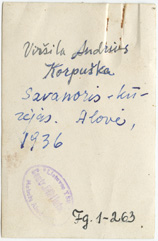 Viršila Andrius
Korpuška
Savanoris-kū-
rėjas. Alovė,
1936
Fg. 1-263